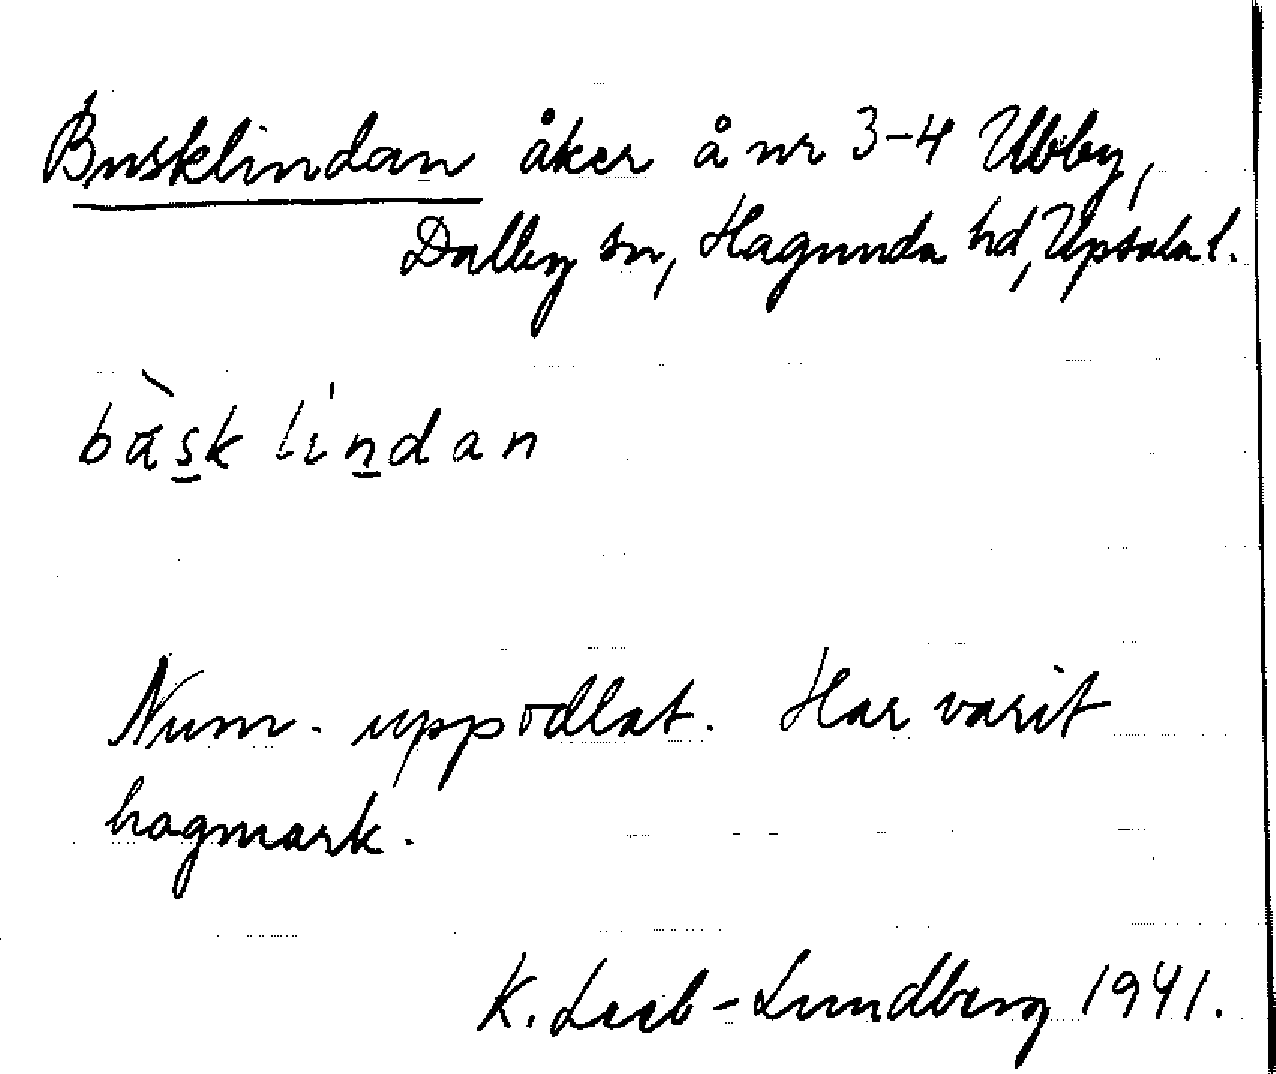 Busklindan åker å nr 3-4 Ubby,
Dalby sn, Hagunda hd, Upsala l.
bàsk lindan
Num. uppodlat. Har varit
hagmark.
K. Leeb-Lundberg 1941.